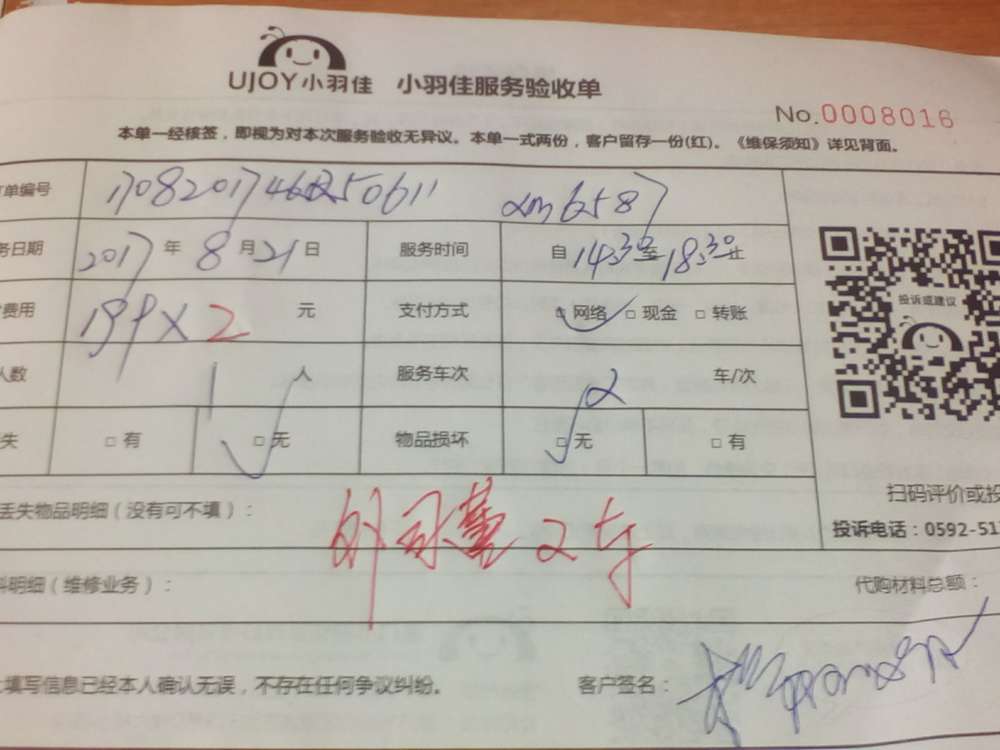 UJOY小羽佳 小羽佳服务验收单
No.0008016
本单一经核签，即视为对本次服务验收无异议。本单一式两份，客户留存一份(红)。《维保须知》详见背面。
单编号 xm6587
务日期 2017 年 8 月 21 日 服务时间 自 14:30 至 18:30 止
费用 199×2 元 支付方式 □ 网络 □ 现金 □ 转账
人数 1 人 服务车次 2 车/次
失 □ 有 □ 无 物品损坏 □ 无 □ 有
投诉或建议
扫码评价或投
投诉电话：0592-51
丢失物品明细（没有可不填）：
2车
料明细（维修业务）： 代购材料总额：
填写信息已经本人确认无误，不存在任何争议纠纷。 客户签名：